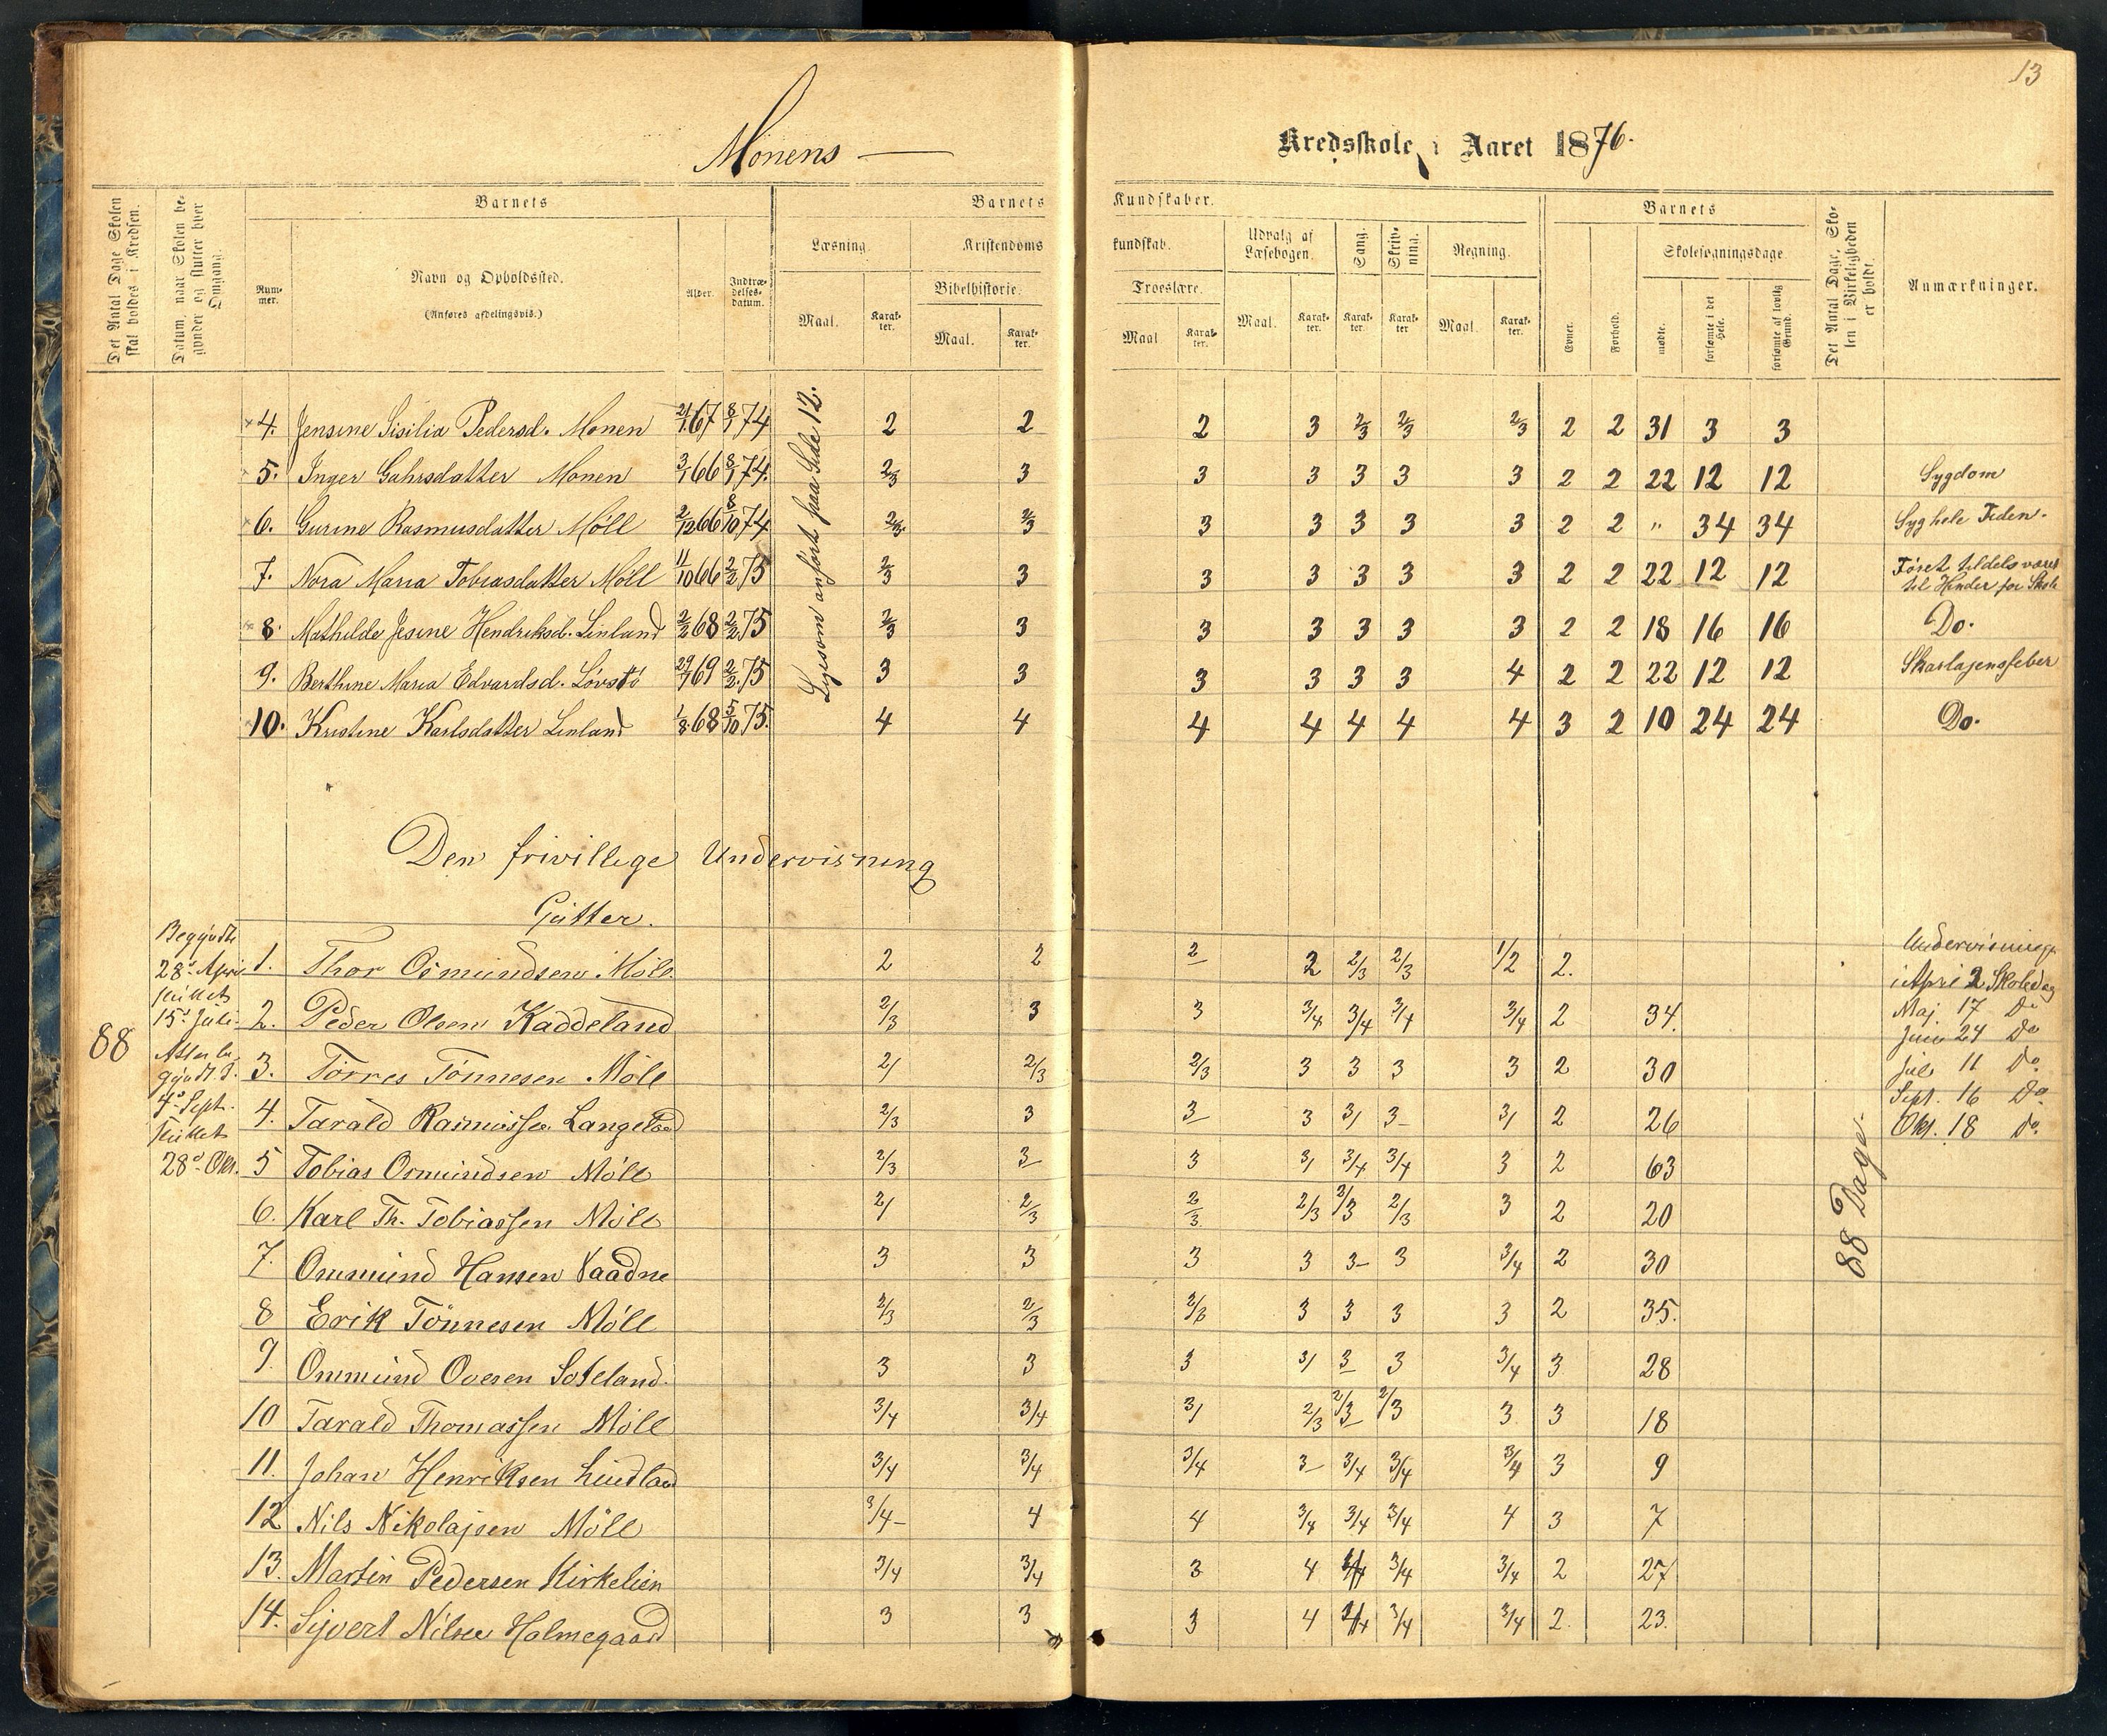 13
Monens —
Kredsskole, i Aaret 1876.
Det Antal Dage Skolen skal holdes i Kredsen.
Datum, naar Skolen begynder og slutter hver Omgang.
Barnets
Nummer.
Navn og Opholdssted.
(Anføres afdelingsvis.)
Alder.
Indtrædelsesdatum.
Barnets
Kundskaber.
Læsning.
Maal.
Karakter.
Kristendoms
kundskab.
Bibelhistorie.
Maal.
Karakter.
Troeslære.
Maal
Karakter.
Udvalg af Læsebogen.
Maal.
Karakter.
Sang.
Karakter.
Skrivning.
Karakter
Regning.
Maal.
Karakter.
Barnets
Evner.
Forhold.
Skolesøgningsdage.
mødte.
forsømte i det Hele.
forsømte af lovlig Grund.
Det Antal Dage, Skolen i Virkeligheden er holdt.
Anmærkninger.
Ligesom anført paa Side 12.
4. Jensine Sisilia Pedersd. Monen 21/1 67 8/1 74 2 2 2 3 2/3 2/3 2/3 2 2 31 3 3
5. Inger Gahrsdatter Monen 3/1 66 8/1 74. 2/3 3 3 3 3 3 3 2 2 22 12 12 Sygdom
6. Gurine Rasmusdatter Möll 2/12 66 8/10 74 2/3 2/3 3 3 3 3 3 2 2 " 34 34 Syg hele Tiden.
7. Nora Maria Tobiasdatter Möll 11/10 66 2/2 75 2/3 3 3 3 3 3 3 2 2 22 12 12 Føret tildels været til Hinder for Skole
8. Mathilde Jesine Hendriksd. Linland 2/2 68 2/2 75 2/3 3 3 3 3 3 3 2 2 18 16 16 Do.
9. Berthine Maria Edvardsd. Lövstö 29/7 69 2/2 75 3 3 3 3 3 3 4 2 2 22 12 12 Skarlagensfeber
10. Kristine Karlsdatter Linland 1/8 68 5/10 75. 4 4 4 4 4 4 4 3 2 10 24 24 Do.
Den frivillige Undervisning
Gutter.
88
Begyndte
28d April
sluttet
15d Juli.
Atter be-
gyndt d.
4d Sept.
sluttet
28d Okt.
1. Thor Osmundsen Möll. 2 2 2 2 2/3 2/3 1/2 2.
2. Peder Olsen Kaddeland 2/3 3 3 3/4 3/4 3/4 3/4 2 34.
3. Törres Tönnesen Möll 2/ 2/3 2/3 3 3 3 3 2 30
4. Tarald Rasmussen Langeland 2/3 3 3- 3 3/ 3- 3/ 2 26
5 Tobias Osmundsen Möll 2/3 3- 3 3/ 3/4 3/4 3 2 63
6. Karl Th. Tobiassen Möll 2/ 2/3 2/3 2/3 2/3 2/3 3 2 20
7. Ommund Hansen Vaadne 3 3 3 3 3- 3 3/4 2 30
8 Erik Tönnesen Möll 2/3 2/3 2/3 3 3 3 3 2 35.
9. Ommund Ovesen Soteland. 3 3 3 3/ 3 3 3/4 3 28
10 Tarald Thomassen Möll 3/4 3/4 3/ 2/3 2/3 2/3 3 3 18
11. Johan Henriksen Lindland 3/4 3/4 3/4 3- 3/4 3/4 3/4 3 9
12 Nils Nikolajsen Möll 3/4- 4 4 3/4 3/4 3/4 4 3 7
13. Martin Pedersen Kirkelien 3/4 3/4 3 4 3/4 3/4 2 27
14. Sijvert Nilsen Holmegaard 3 3 3 4 3/4 3/4 2. 23.
88 Dage.
Undervisning
i April 2 Skoledag
Maj 17 Do
Juni 24 Do
Juli 11 Do.
Sept. 16 Do.
Okt. 18 Do.